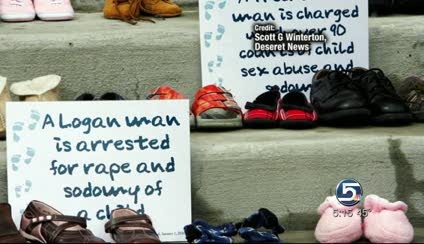 man is charged
over 90
counts of child
sex abuse and
sodomy.
Credit:
Scott G Winterton,
Deseret News
A Logan man
is arrested
for rape and
sodomy of
a child
5
5:15 45°